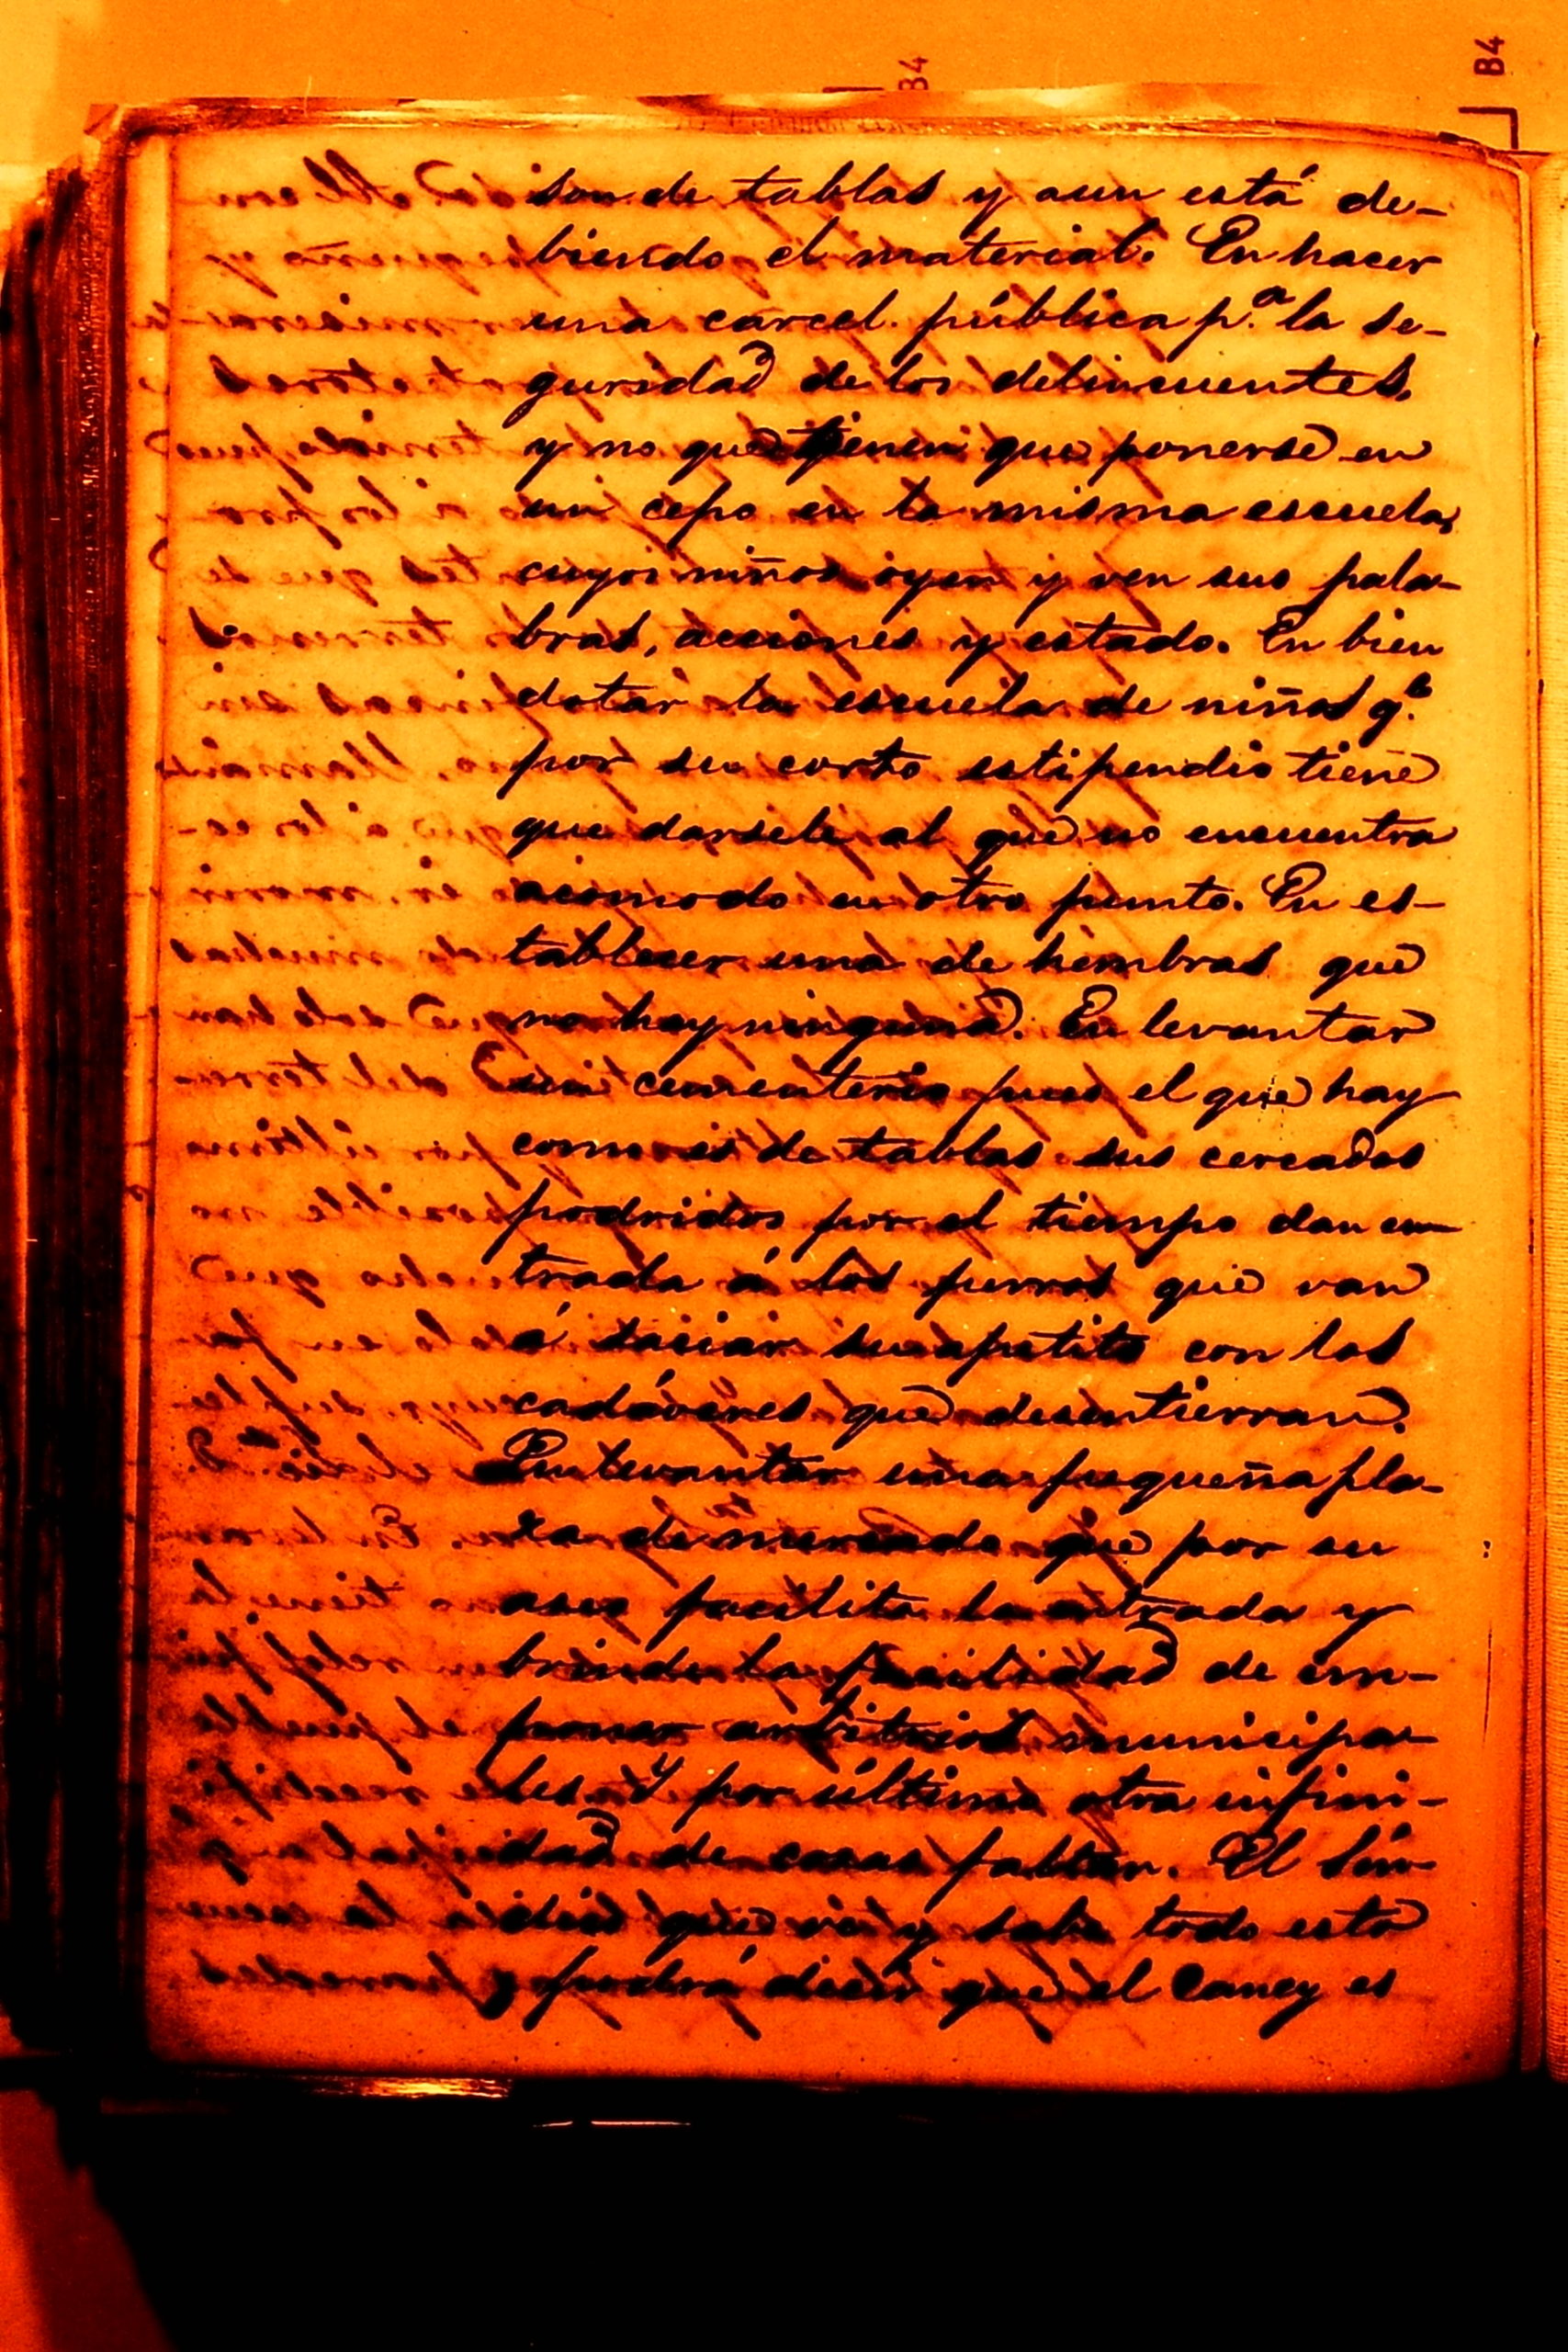 B4
B4
son de tablas y aun está de-
biendo el material. En hacer
una carcel pública p.ª la se-
guridad de los delincuentes,
y no que tienen que ponerse en
un cepo en la misma escuela,
cuyos niños oyen y ven sus pala-
bras, acciones y estado. En bien
dotar la escuela de niños q.e
por su corto estipendio tiene
que darsele al que no encuentra
acomodo en otro punto. En es-
tablecer una de hembras que
no hay ninguna. En levantar
un cementerio pues el que hay
como es de tablas sus cercados
podridos por el tiempo dan en-
trada á los perros que van
á saciar su apetito con los
cadáveres que desentierran.
En levantar una pequeña pla-
za de mercado que por su
aseo facilite la entrada y
brinde la facilidad de im-
poner arbitrios municipa-
les y por último otra infini-
dad de cosas faltan. El Sín-
dico que vé y sabe todo esto
podrá decir que el Caney es